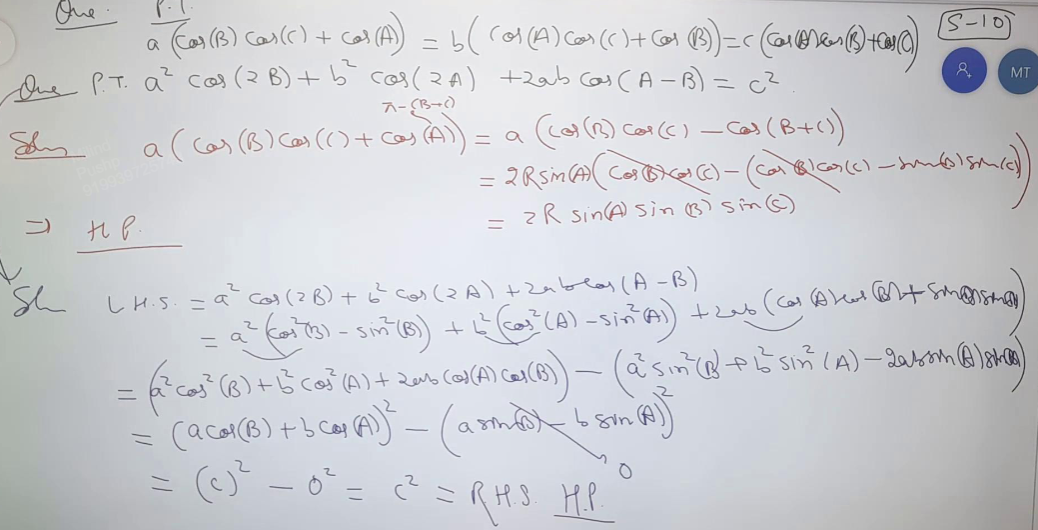 Que. P.T.
a (cos(B) cos(C) + cos(A)) = b( cos(A) cos(C) + cos(B)) = c (cos(A) cos(B) + cos(C))
S-10
MT
Que P.T. a² cos(2B) + b² cos(2A) + 2ab cos(A - B) = c².
π-(B+C)
Soln a( cos(B) cos(C) + cos(A)) = a (cos(B) cos(C) - cos(B+C))
= 2R sin(A) (cos(B) cos(C) - (cos(B) cos(C) - sin(B) sin(C)))
= 2R sin(A) sin(B) sin(C)
⇒ H P.
Sln L.H.S. = a² cos(2B) + b² cos(2A) + 2ab cos(A - B)
= a² (cos²(B) - sin²(B)) + b² (cos²(A) - sin²(A)) + 2ab (cos(A) cos(B) + sin(A) sin(B))
= (a² cos²(B) + b² cos²(A) + 2ab cos(A) cos(B)) - (a² sin²(B) + b² sin²(A) - 2ab sin(A) sin(B))
= (a cos(B) + b cos(A))² - (a sin(B) - b sin(A))²
0
= (c)² - 0² = c² = R.H.S. H.P.